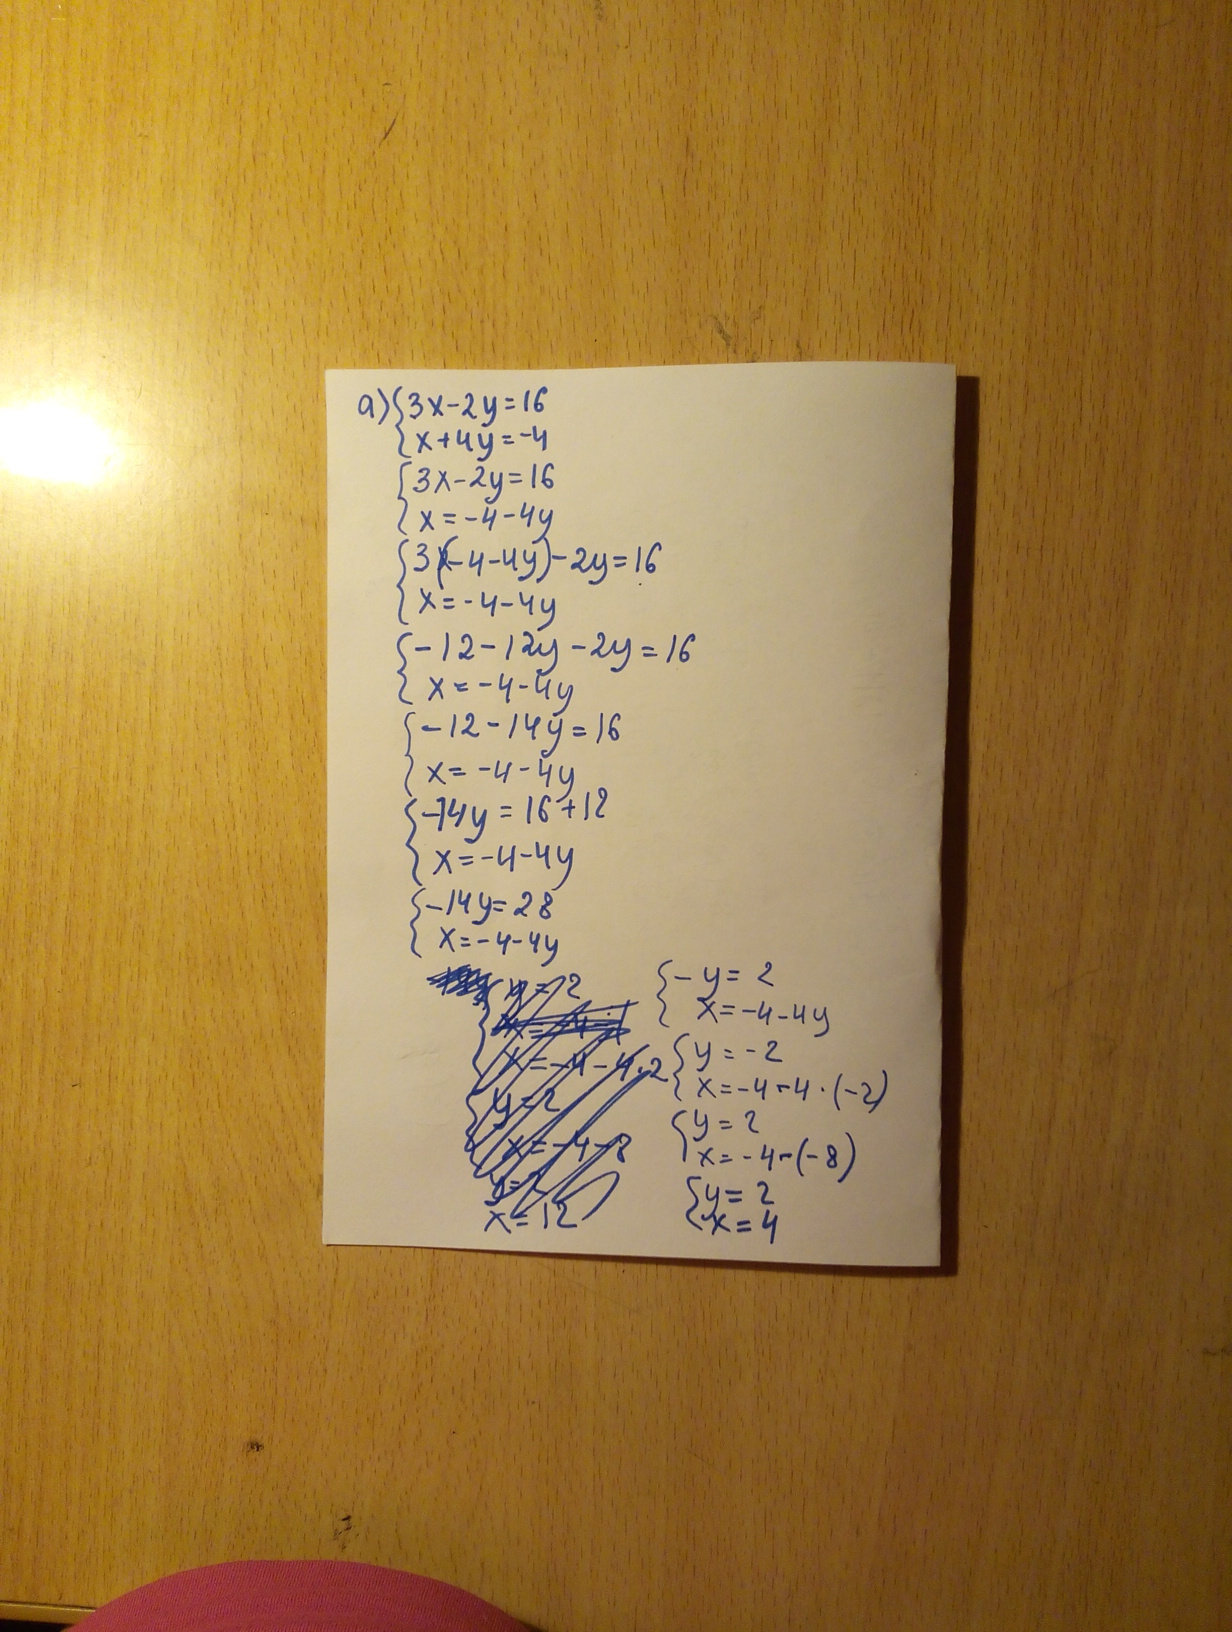 a) {3x-2y=16
{x+4y=-4
{3x-2y=16
x=-4-4y
{3(-4-4y)-2y=16
x=-4-4y
{-12-12y-2y=16
x=-4-4y
{-12-14y=16
x=-4-4y
{-14y=16+12
x=-4-4y
{-14y=28
x=-4-4y
y=2
x=-4-4·2
y=2
x=-4-8
y=2
x=12
{-y=2
x=-4-4y
{y=-2
x=-4-4·(-2)
{y=2
x=-4-(-8)
{y=2
x=4